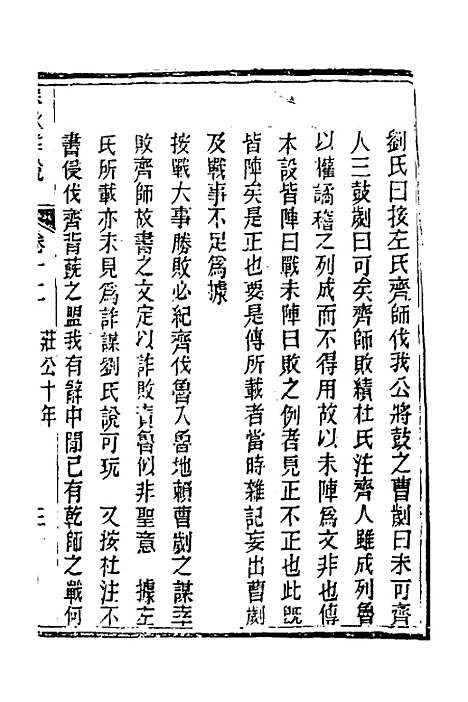 劉氏曰按左氏齊師伐我公將鼓之曹劌曰未可齊
人三鼓劌曰可矣齊師敗績杜氏注齊人雖成列魯
以權譎稽之列成而不得用故以未陣為文非也傳
本設皆陣曰戰未陣曰敗之例者見正不正也此既
皆陣矣是正也要是傳所載者當時雜記妄出曹劌
及戰事不足為據
按戰大事勝敗必紀齊伐魯入魯地賴曹劌之謀幸
敗齊師故書之文定以詐敗責魯似非聖意 據左
氏所載亦未見為詐謀劉氏說可玩 又按杜注不
書侵伐齊背蔇之盟我有辭中閒已有乾師之戰何
卷十 莊公十年